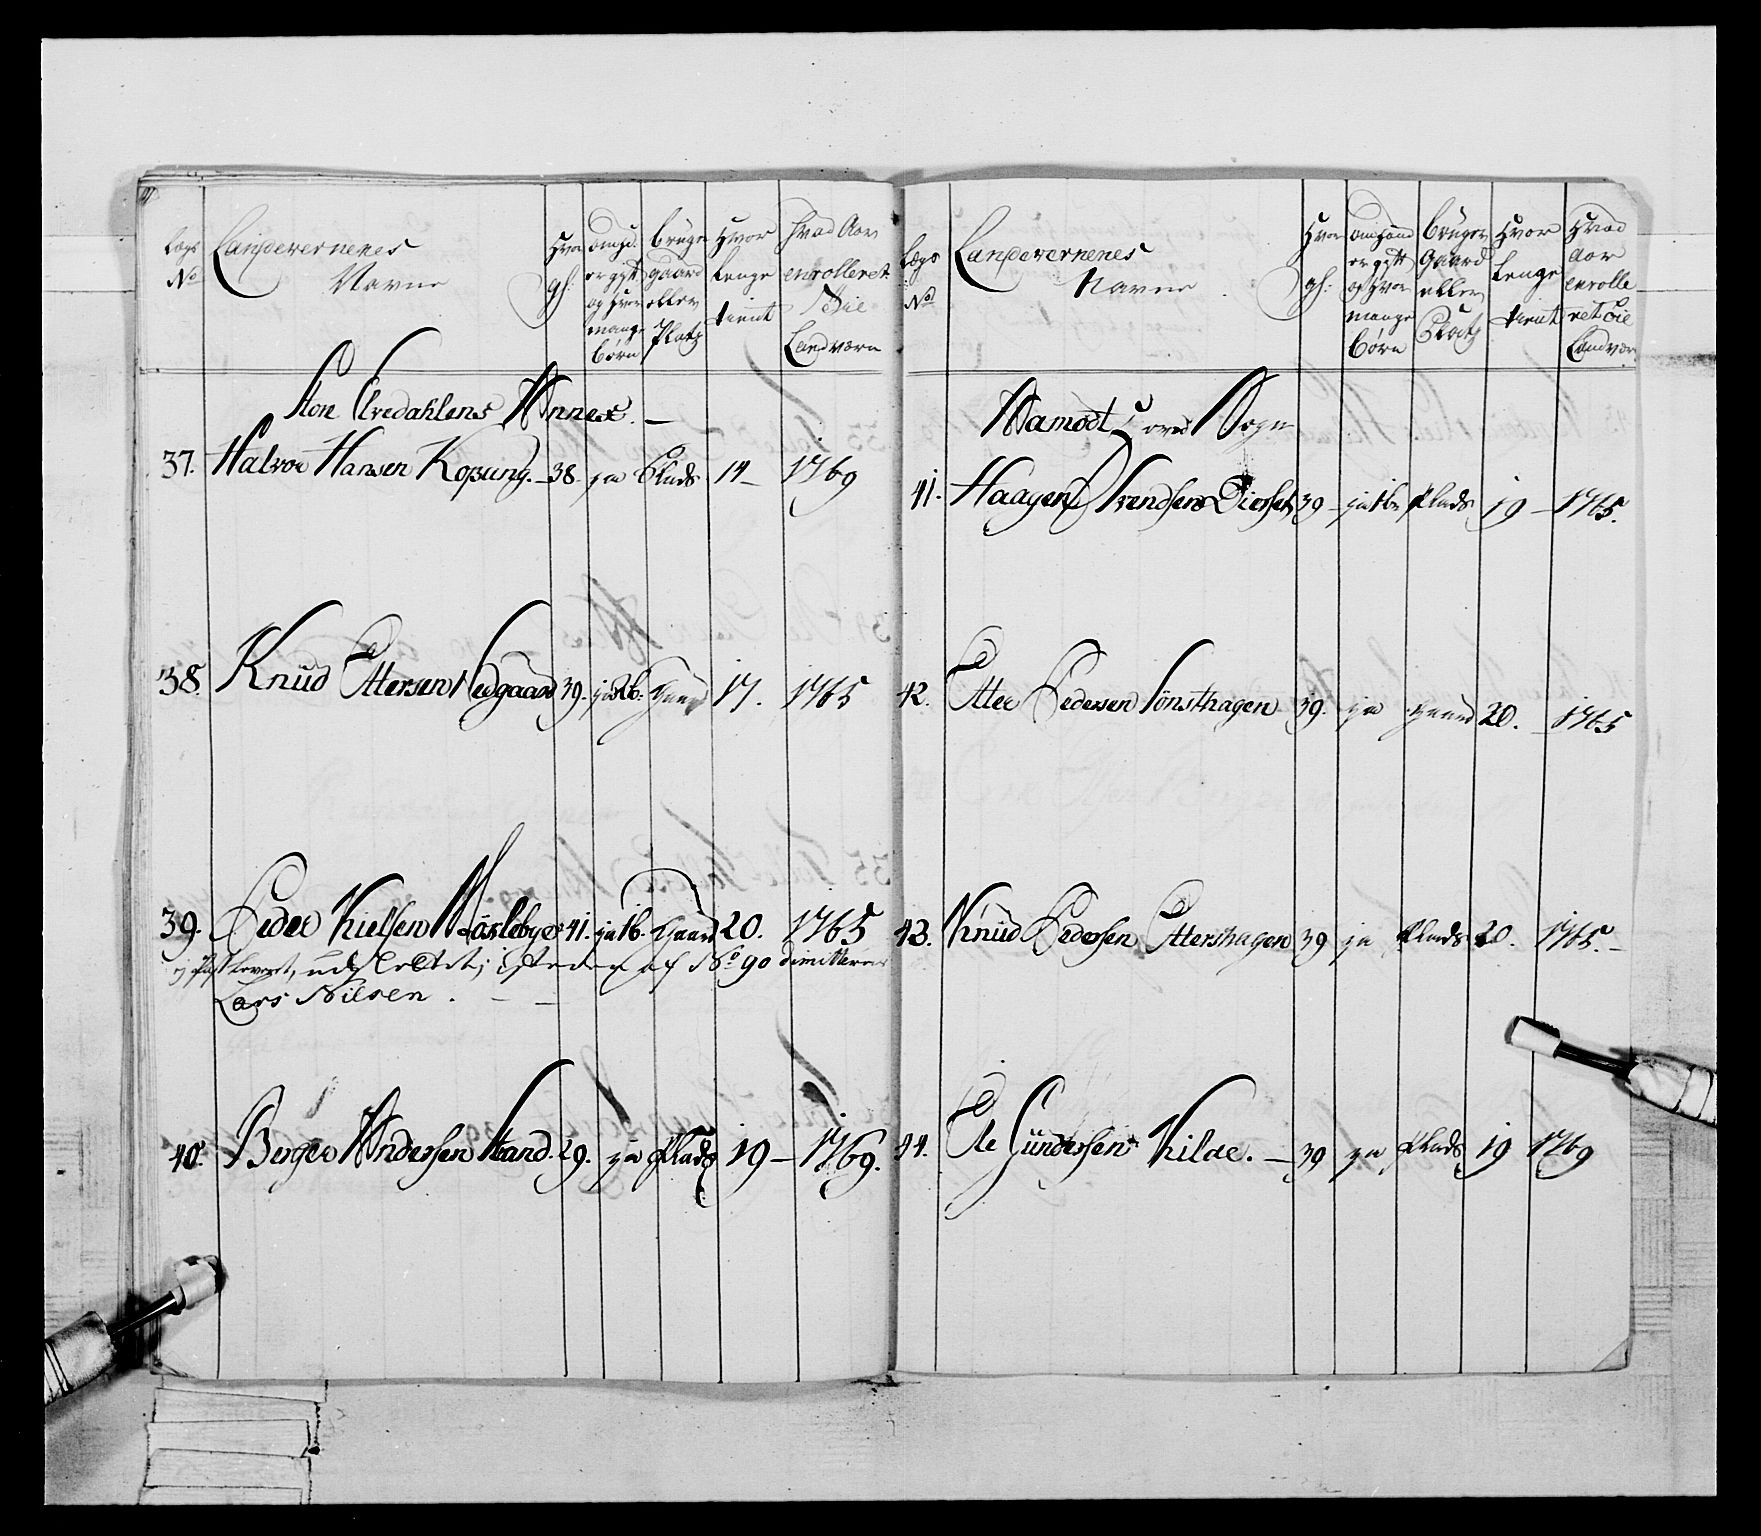 Lægs No
Landevernenes Navne
Hvor gl:
omhand er gift og hvor mange børn
bruger gaard eller Platz
Hvor lenge tient
Hvad Aar enrolleret Landværn
Stor Elvedahlens Annex. —
37. Halvor Hansen Kopang. — 38. ja Plads 14 — 1769
38. Knud Ottersen Nedgaard 39. ja 2 b. Gaard 17. 1765
39. Peder Kielsen 41. ja 1 b. Gaard 20. 1765
udslettet, isteden af No 90
Lars Nilsen. — —
40. Berger Andersen Strand. 29. ja Plads 19 — 1769.
Lægs No
Landevernenes Navne
Hvor gl:
omhand er gift og hvor mange børn
bruger Gaard eller Platz
Hvor lenge tient
Hvad Aar enrolleret Landvær
Aamodt Hoved Sogn
41. Haagen Svendsen Dieset 39 — ja 1 b. Plads 19 — 1765.
42. Otter Pedersen Lönsthagen 39. ja gaard 20. — 1765
43. Knud Pedersen Ottershagen 39 ja Plads 20. 1765. —
44. Ole Gundersen Kilde. — 39 ja Plads 19 1769